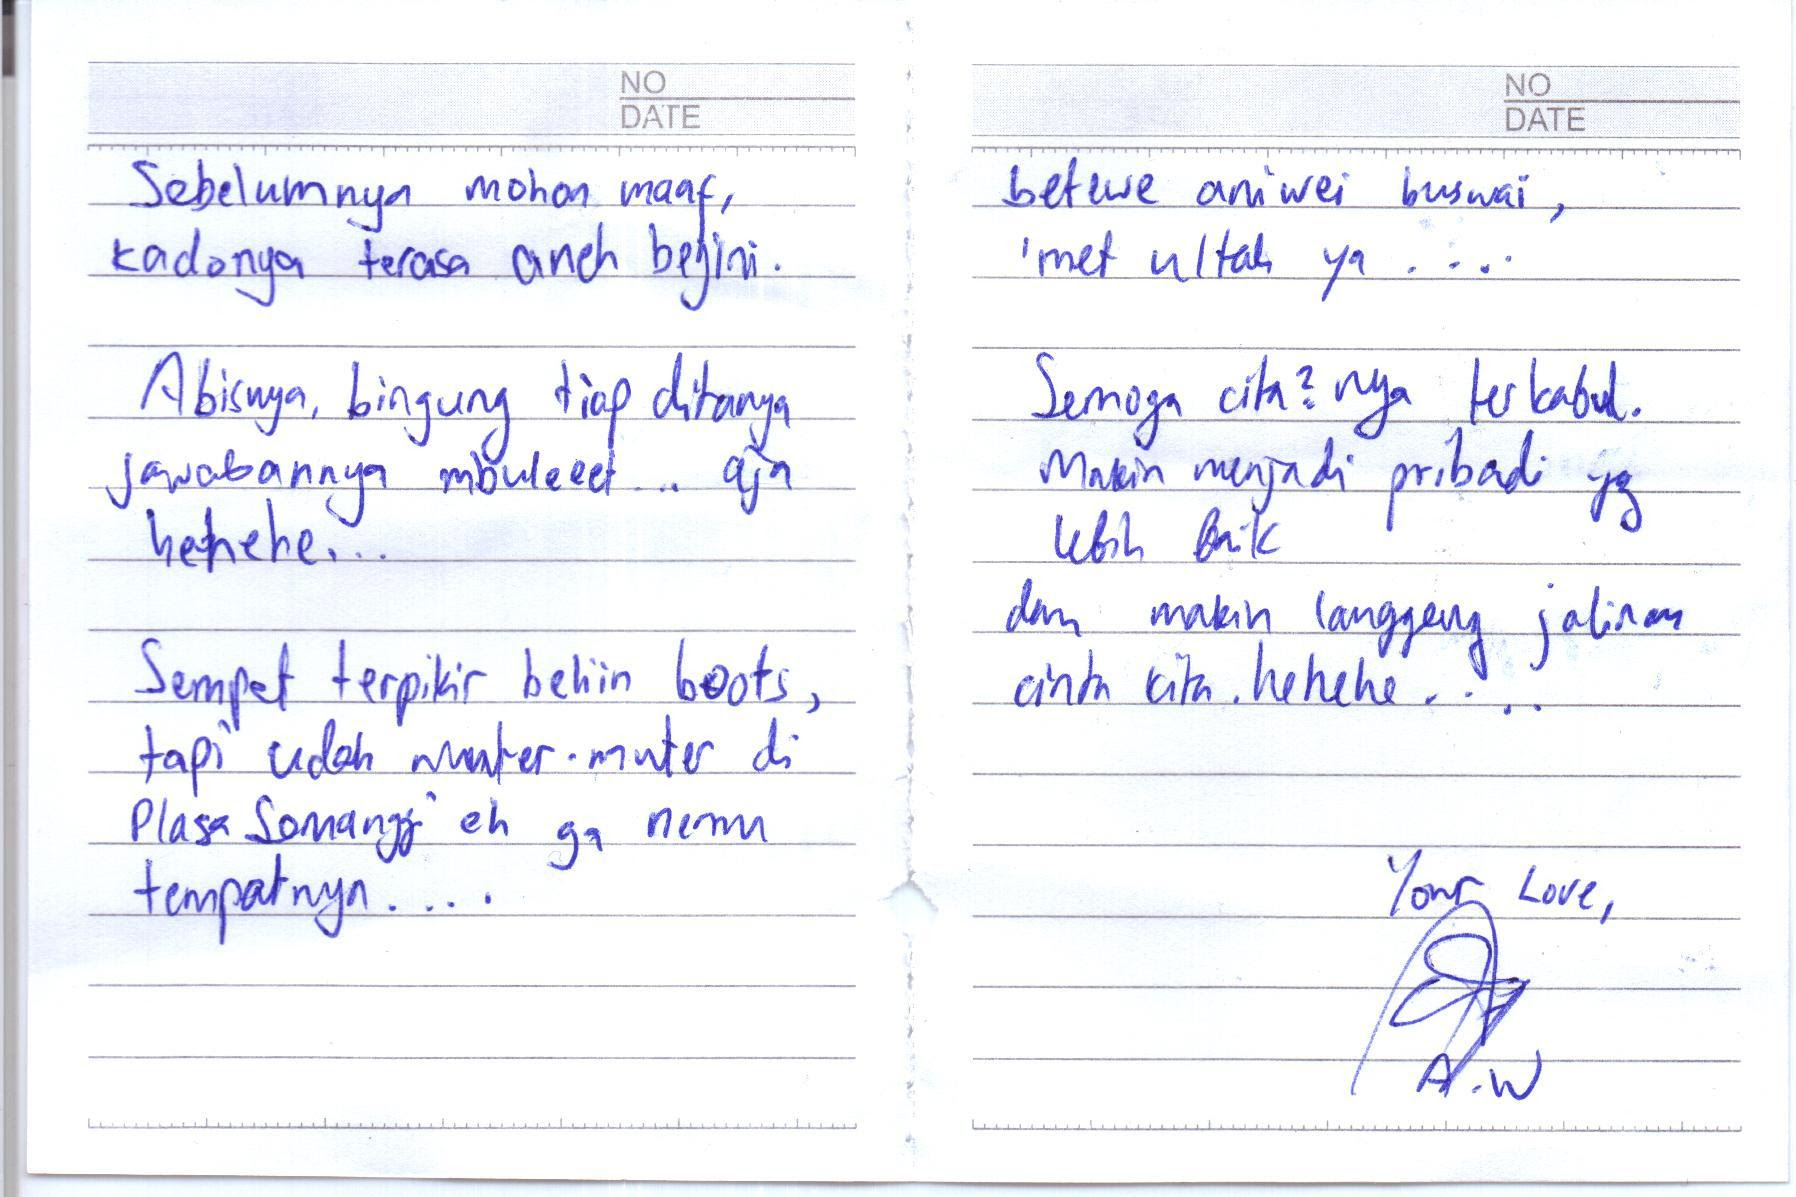 NO
DATE
Sebelumnya mohon maaf,
kadonya terasa aneh begini.
Abisnya, bingung tiap ditanya
jawabannya mbuleeet... aja
hehehe...
Sempet terpikir beliin boots,
tapi udah muter-muter di
Plasa Semanggi eh ga nemu
tempatnya....
NO
DATE
betewe aniwei buswai,
'met ultah ya ....
Semoga cita2nya terkabul.
Makin menjadi pribadi yg
lebih Baik
dan makin langgeng jalinan
cinta kita. hehehe....
Your Love,
A.W